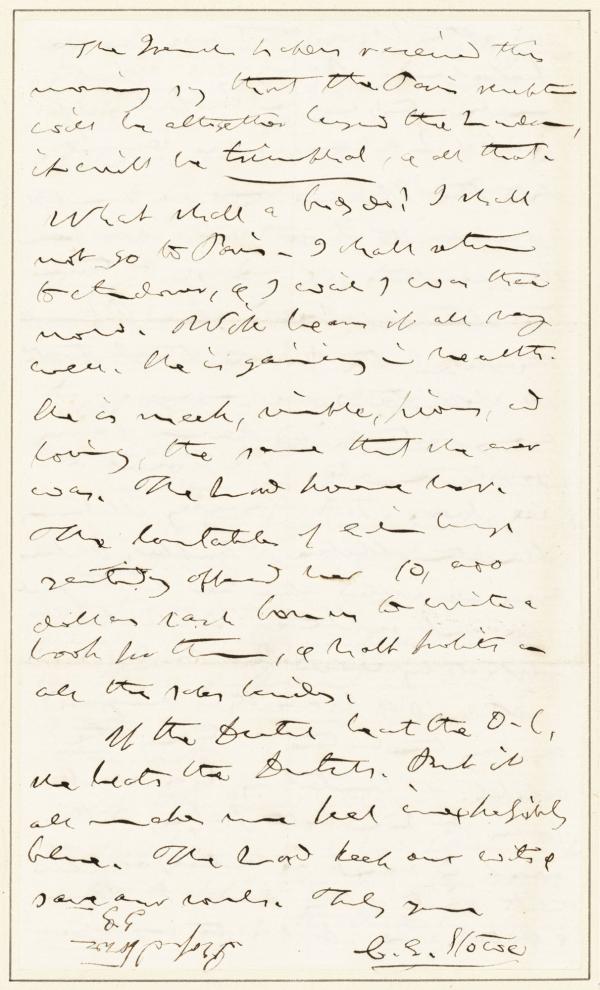 The French papers received this
morning say that the Paris reception
will be altogether beyond the London,
it will be triumphal, & all that.
What shall a body do? I shall
not go to Paris - I shall return
to Andover, & I wish I was there
now. Wife bears it all very
well. She is gaining in health.
She is meek, humble, pious, and
loving, the same that she ever
was. The Lord preserve her.
The Constables of Edinburgh
yesterday offered her 10,000
dollars cash bonus to write a
book for them, & half profits on
all the sales besides.
If the Dutch beat the D-l,
she beats the Dutch. But it
all makes me feel inexpressibly
blue. The Lord keep our wits &
save our souls. Truly yours
C. E. Stowe
Prof Stowe